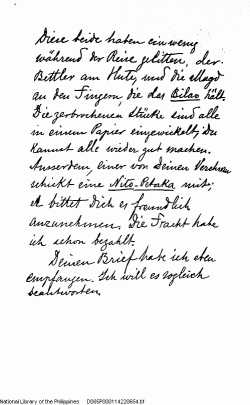 Diese beide haben ein wenig
während der Reise gelitten, der
Bettler am Hute, und die Magd
an den Fingern, die das Bilao hält.
Die zerbrochenen Stücke sind alle
in einem Papier eingewickelt; Du
kannst alle wieder gut machen.
Ausserdem, einer von Deinen Verehrern
schickt eine Nito-Petaka mit;
bittet Dich es freundlich
anzunehmen. Die Fracht habe
ich schon bezahlt.
Deinen Brief habe ich eben
empfangen. Ich will es sogleich
beantworten.
National Library of the Philippines D06SF000114220654.tif